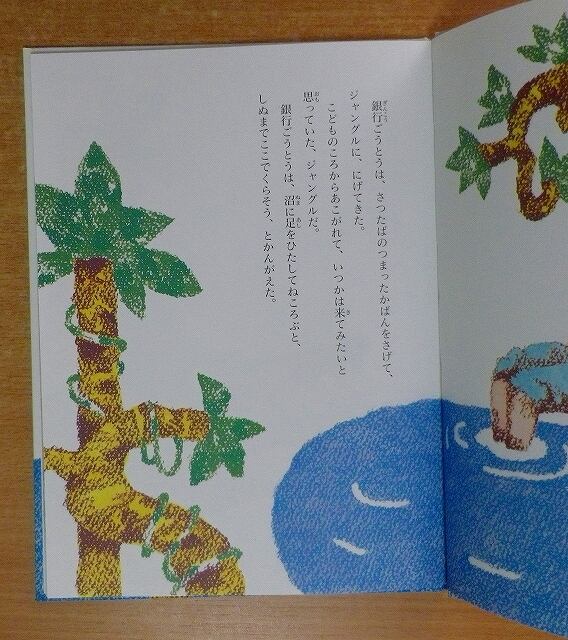 銀行ごうとうは、さつたばのつまったかばんをさげて、
ジャングルに、にげてきた。
こどものころからあこがれて、いつかは来てみたいと
思っていた、ジャングルだ。
銀行ごうとうは、沼に足をひたしてねころぶと、
しぬまでここでくらそう、とかんがえた。